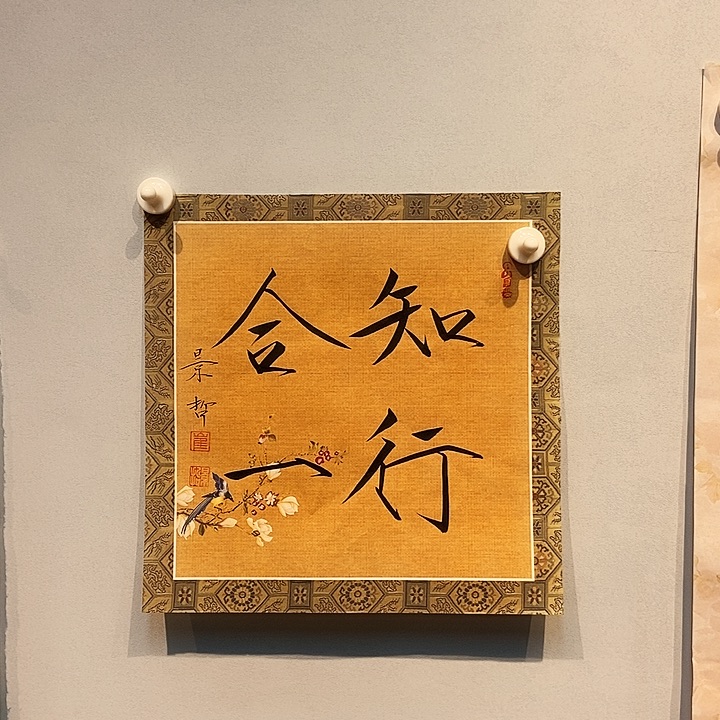 知行
合一
景哲